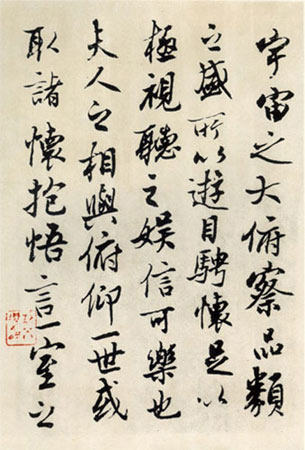 宇宙之大俯察品類
之盛所以遊目騁懷足以
極視聽之娛信可樂也
夫人之相與俯仰一世或
取諸懷抱悟言一室之